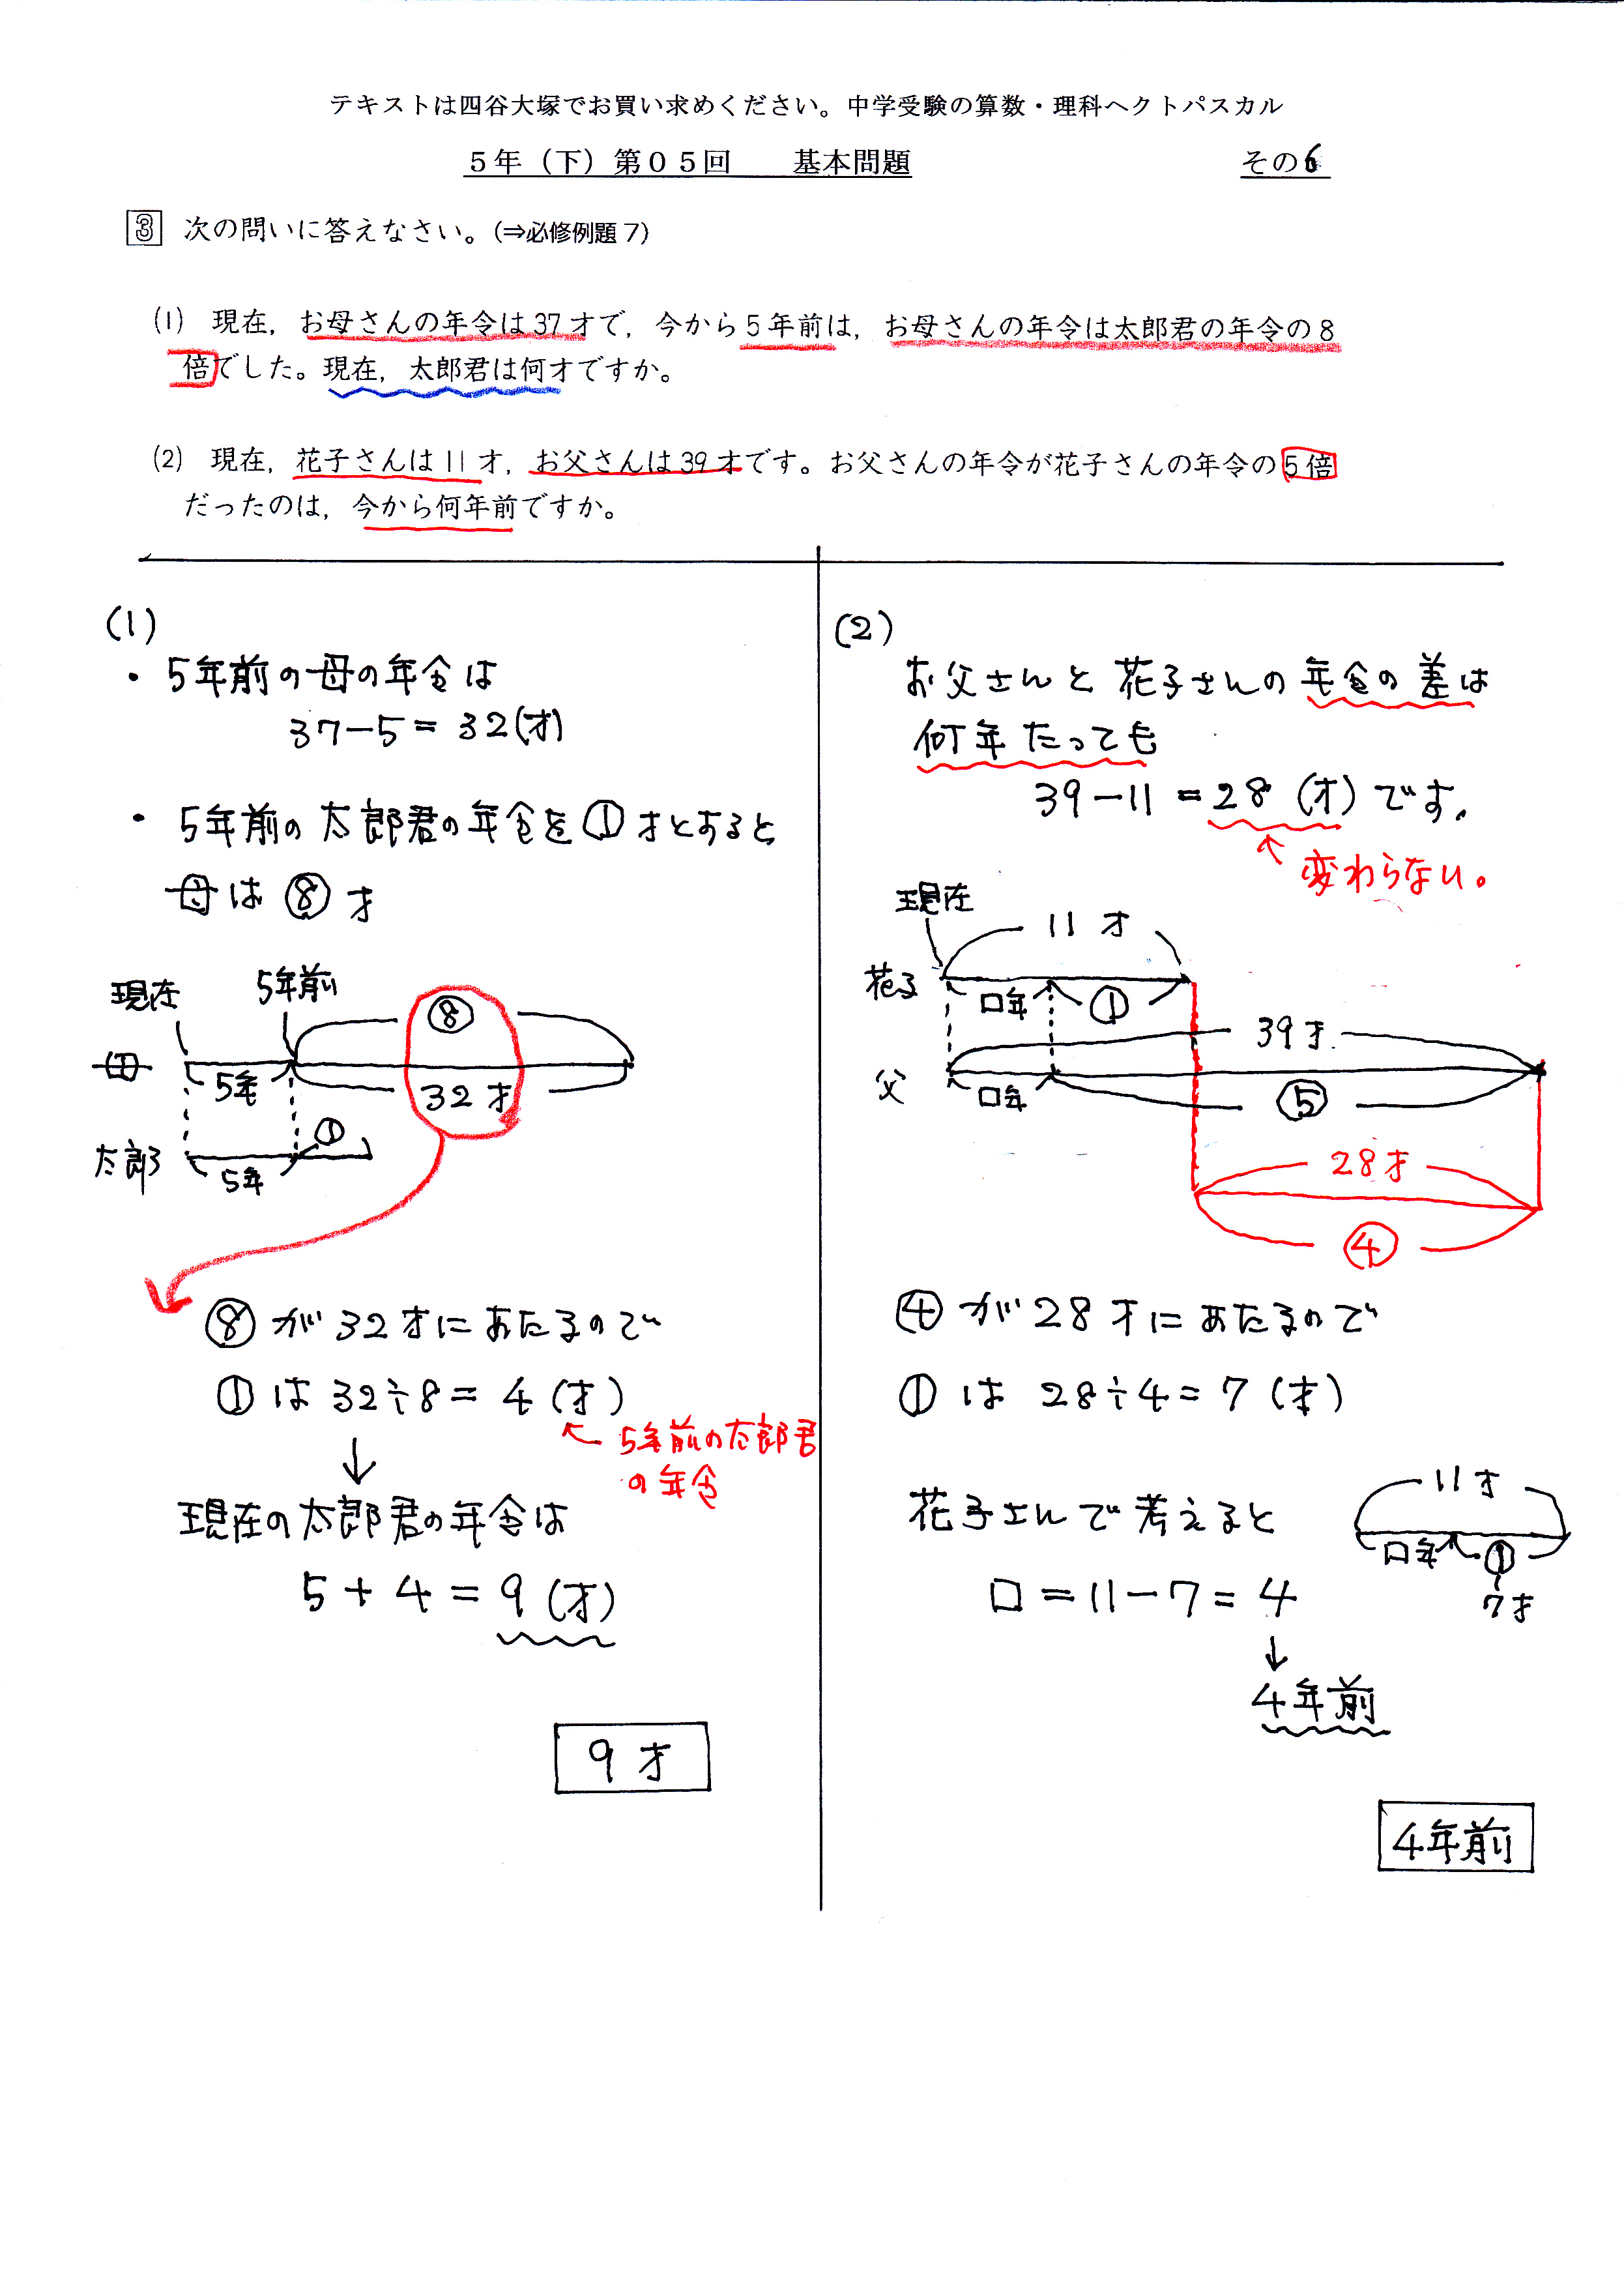 テキストは四谷大塚でお買い求めください。中学受験の算数・理科ヘクトパスカル
5年（下）第05回　　基本問題　　その6
3 次の問いに答えなさい。(⇒必修例題7)
(1) 現在，お母さんの年令は37才で，今から5年前は，お母さんの年令は太郎君の年令の8
倍でした。現在，太郎君は何才ですか。
(2) 現在，花子さんは11才，お父さんは39才です。お父さんの年令が花子さんの年令の5倍
だったのは，今から何年前ですか。
(1)
・5年前の母の年令は
37－5＝32(才)
・5年前の太郎君の年令を①才とすると
母は⑧才
現在 5年前
⑧
母
5年
32才
①
太郎
5年
⑧が32才にあたるので
①は32÷8＝4(才)
5年前の太郎君
の年令
現在の太郎君の年令は
5＋4＝9(才)
9才
(2)
お父さんと花子さんの年令の差は
何年たっても
39－11＝28(才)です。
変わらない。
現在
11才
花子
口年 ①
39才
父
口年 ⑤
28才
④
④が28才にあたるので
①は 28÷4＝7(才)
花子さんで考えると
11才
口年 ①
7才
口＝11－7＝4
4年前
4年前